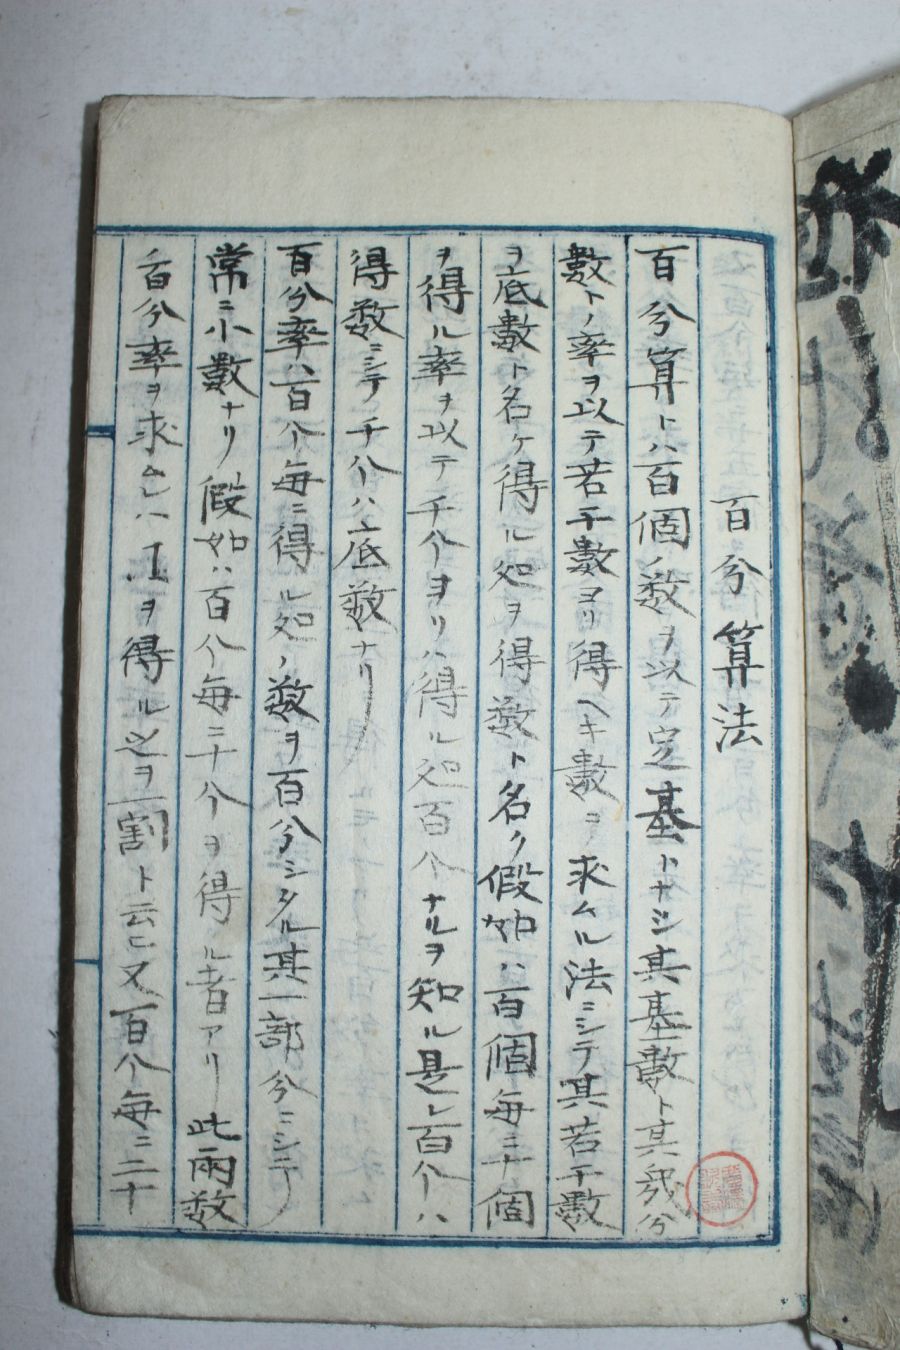 百分算法
百分算トハ百個ノ数ヲ以テ定基トナシ其基數ト其幾分
數トノ率ヲ以テ若干數ヨリ得ヘキ數ヲ求ムル法ニシテ其若干數
ヲ底數ト名ケ得ル処ヲ得数ト名ク假如ハ百個毎ニ十個
ヲ得ル率ヲ以テ千个ヨリハ得ル処百个ナルヲ知ル是レ百个ハ
得数ニシテ千个ハ底数ナリ
百分率ハ百个毎ニ得ル処ノ数ヲ百分シタル其一部分ニシテ
常ニ小數ナリ假如ハ百个毎ニ十个ヲ得ル者アリ此兩数
ノ百分率ヲ求ムレハ.1ヲ得ル之ヲ一割ト云ヒ又百个毎ニ二十